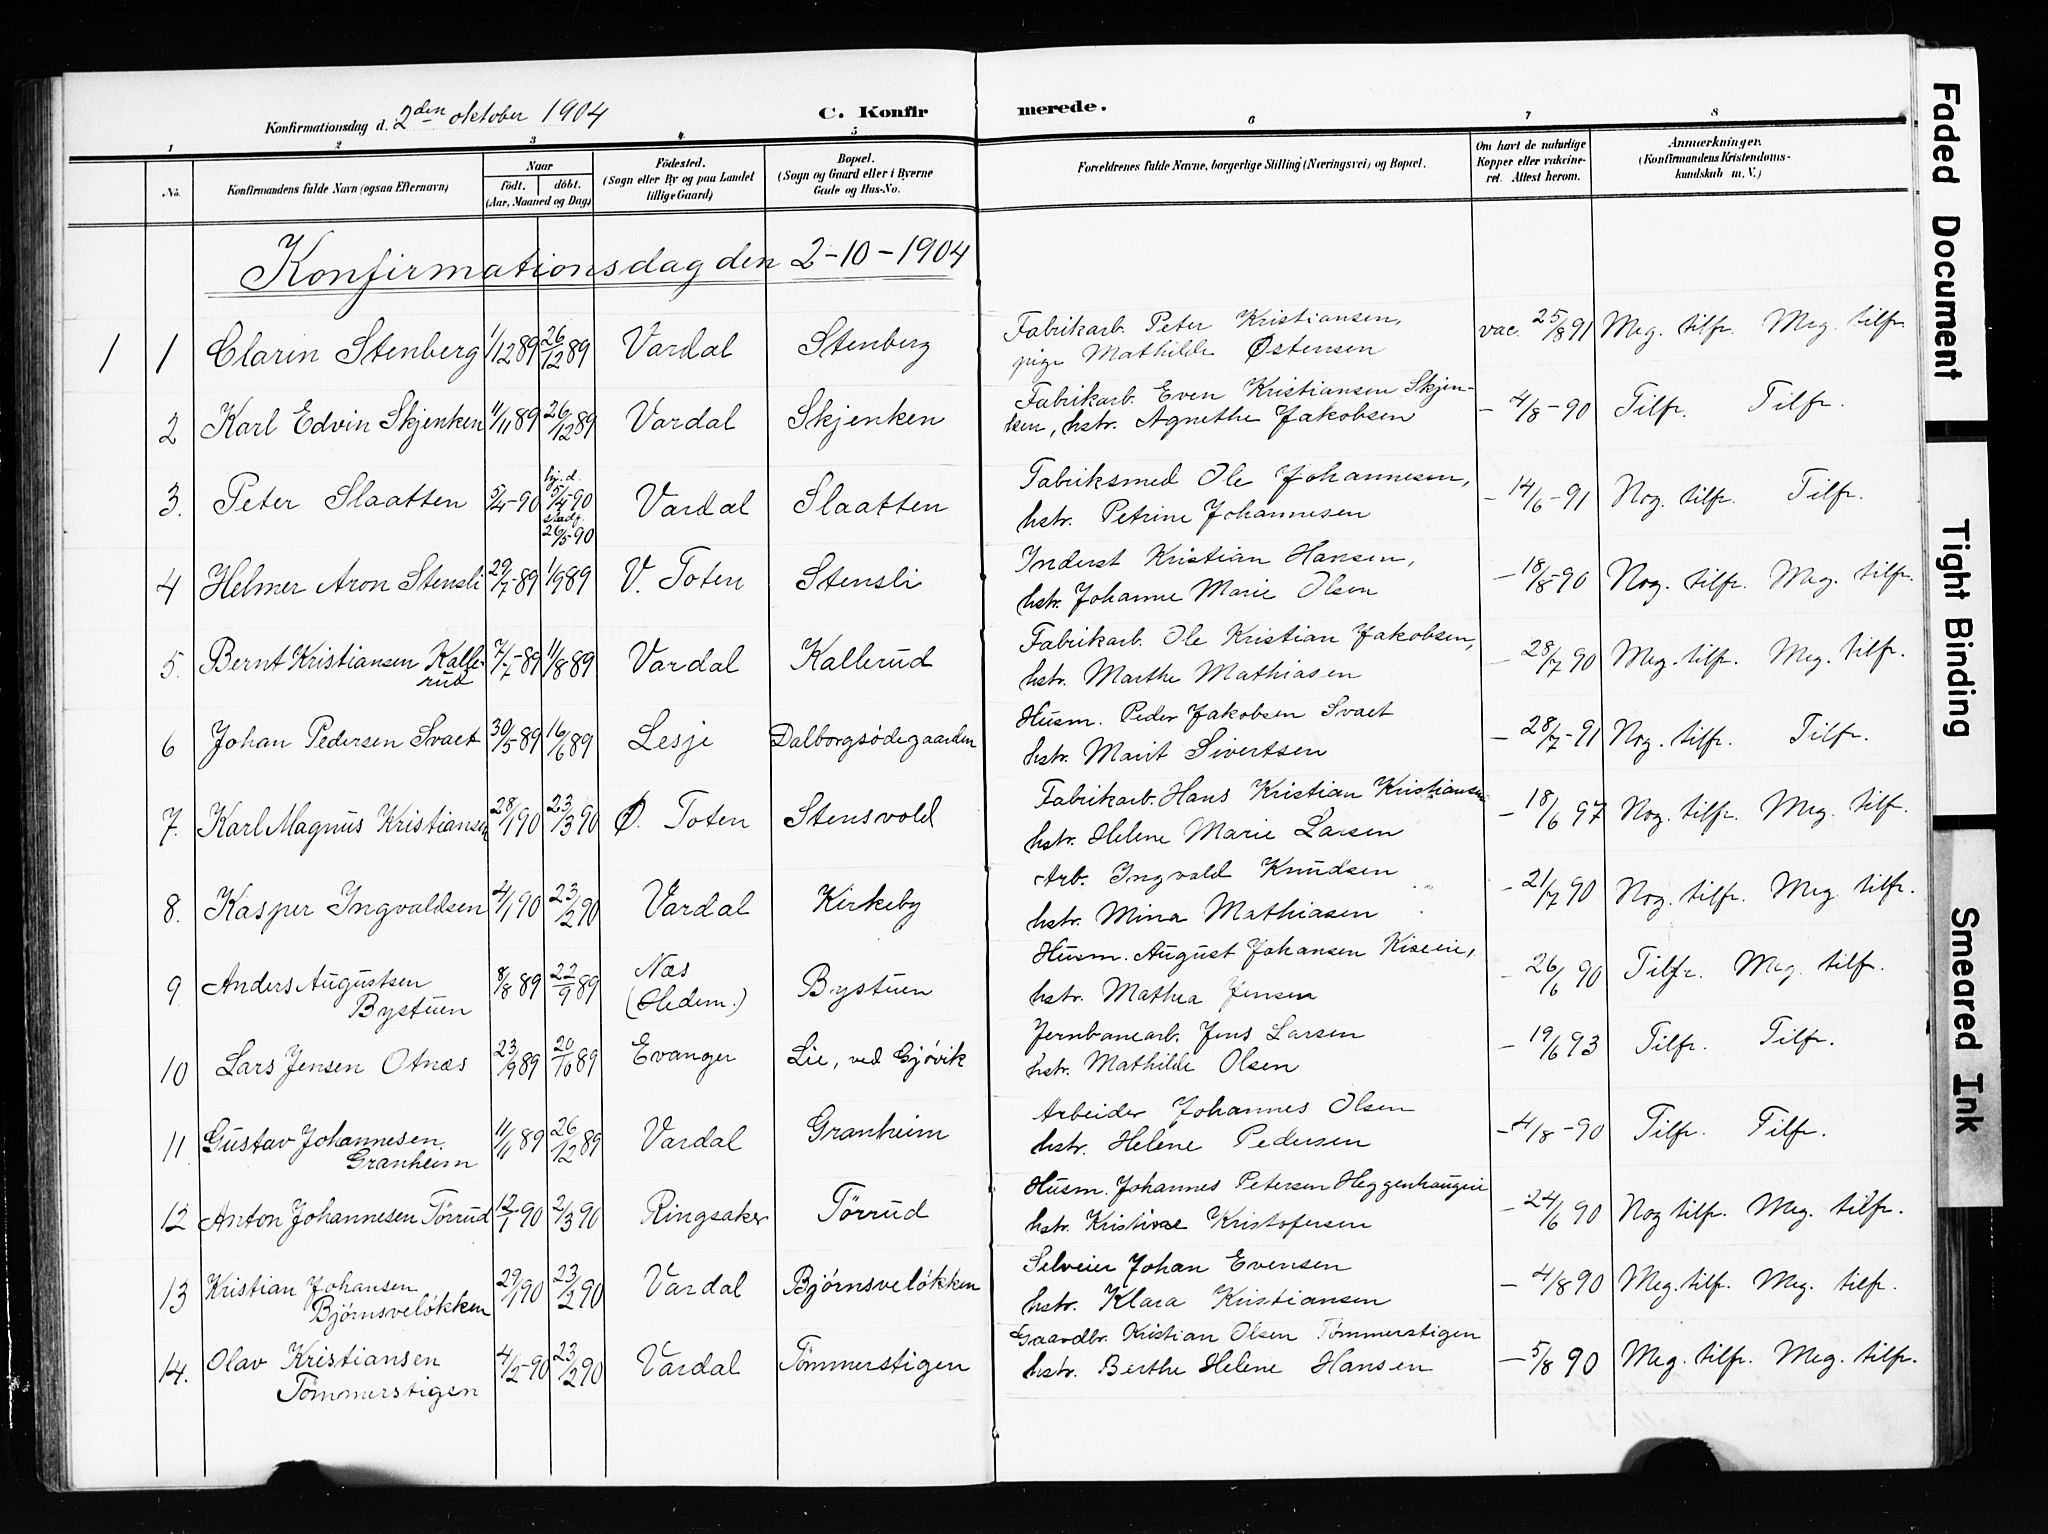 Konfirmationsdag d. 2den oktober 1904
C. Konfirmerede.
1 2 3 4 5 6 7 8
No.
Konfirmandens fulde Navn (ogsaa Efternavn)
Naar
födt. döbt.
(Aar, Maaned og Dag)
Födested.
(Sogn eller By og paa Landet
tillige Gaard)
Bopæl.
(Sogn og Gaard eller i Byerne
Gade og Hus-No.
Forældrenes fulde Navne, borgerlige Stilling (Næringsvei) og Bopæl.
Om havt de naturlige
Kopper eller vakcine-
ret. Attest herom.
Anmærkninger.
(Konfirmandens Kristendoms-
kundskab m. V.)
Konfirmationsdag den 2-10-1904
1 1 Clarin Stenberg 1/12 89 26/12 89 Vardal Stenberg Fabrikarb. Peter Kristiansen, vac. 25/8 91 Meg. tilfr. Meg. tilfr.
pige Mathilde Østensen
2 Karl Edvin Skjenken 11/11 89 26/12 89 Vardal Skjenken Fabrikarb. Even Kristiansen Skjen- - 4/8 - 90 Tilfr. Tilfr.
ken, hstr. Agnethe Jakobsen
3. Peter Slaatten 5/4 - 90 hj. d. 5/4 - 90 Vardal Slaatten Fabriksmed Ole Johannesen, - 14/6 - 91 Nog. tilfr. Tilfr.
stadf. 26/5 - 90 hstr. Petrine Johannesen
4 Helmer Aron Stensli 29/7 - 89 1/9 89 V. Toten Stensli Inderst Kristian Hansen, - 18/8 - 90 Nog. tilfr. Meg. tilfr.
hstr. Johanne Marie Olsen
5. Bernt Kristiansen Kalle- 7/7 - 89 11/8 89 Vardal Kallerud Fabrikarb. Ole Kristian Jakobsen, - 28/7 90 Meg. tilfr. Meg. tilfr.
rud hstr. Marthe Mathiasen
6 Johan Pedersen Svaet 30/5 89 16/6 89 Lesje Dalborgsødegaarden Husm. Peder Jakobsen Svaet - 28/7 - 91 Nog. tilfr. Tilfr.
hstr. Marit Sivertsen
7. Karl Magnus Kristiansen 28/1 90 23/3 90 Ø. Toten Stensvold Fabrikarb. Hans Kristian Kristiansen - 18/6 97 Nog. tilfr. Meg. tilf.
hstr. Helene Marie Larsen
8. Kasper Ingvaldsen 4/1 90 23/2 90 Vardal Kirkeby Arb. Ingvald Knudsen - 21/7 90 Nog. tilfr. Meg tilfr.
hstr. Mina Mathiasen
9 Anders Augustsen 8/8 89 22/9 89 Næs Bystuen Husm. August Johansen Kiseie, - 26/6 90 Tilfr. Meg. tilfr.
Bystuen (Hedem.) hstr. Mathea Jensen
10 Lars Jensen Otnæs 23/9 89 20/10 89 Evanger Lie, ved Gjøvik Jernbanearb. Jens Larsen - 19/6 93 Tilfr. Tilfr.
hstr. Mathilde Olsen
11 Gustav Johannesen 11/11 89 26/12 89 Vardal Granheim Arbeider Johannes Olsen - 4/8 - 90 Tilfr. Tilfr.
Granheim hstr. Helene Pedersen
12 Anton Johannesen Törrud 12/1 90 2/3 90 Ringsaker Törrud Husm. Johannes Petersen Heggenhaugen - 24/6 90 Nog tilfr. Meg. tilfr.
hstr. Kristine Kristofersen
13 Kristian Johansen 29/1 90 23/2 90 Vardal Bjørnsveløkken Selveier Johan Evensen - 4/8 90 Meg. tilfr. Meg. tilfr.
Bjørnsveløkken hstr. Klara Kristiansen
14. Olav Kristiansen 4/2 - 90 23/2 90 Vardal Tömmerstigen Gaardbr. Kristian Olsen Tømmerstigen - 5/8 90 Meg. tilfr. Meg. tilfr.
Tömmerstigen hstr. Berthe Helene Hansen
Faded Document
Tight Binding
Smeared Ink